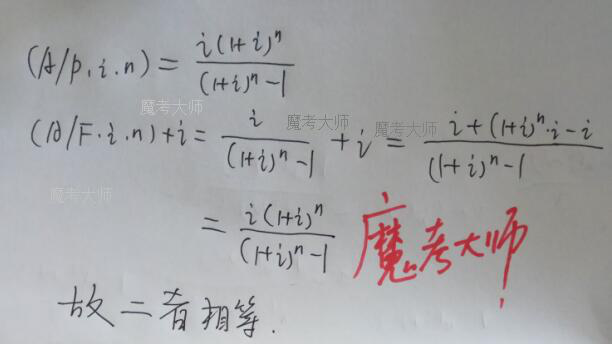 (A/P.i.n) = i(1+i)^n / (1+i)^n-1
魔考大师
(A/F.i.n)+i = i / (1+i)^n-1 + i = i+(1+i)^n·i-i / (1+i)^n-1
魔考大师 魔考大师
魔考大师
= i(1+i)^n / (1+i)^n-1
魔考大师
故二者相等.